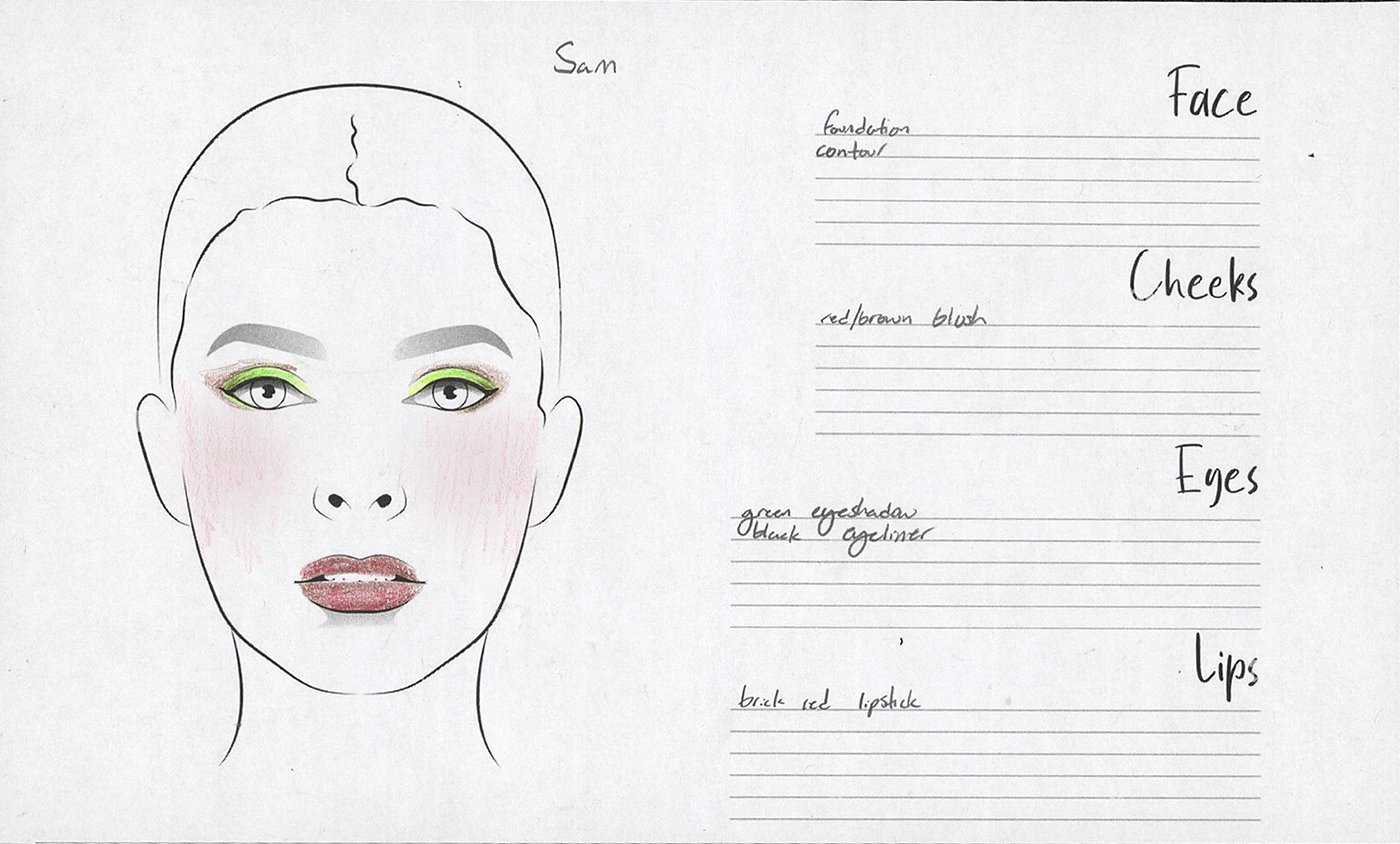 Sam
Face
foundation
contour
Cheeks
red/brown blush
Eyes
green eyeshadow
black eyeliner
Lips
brick red lipstick